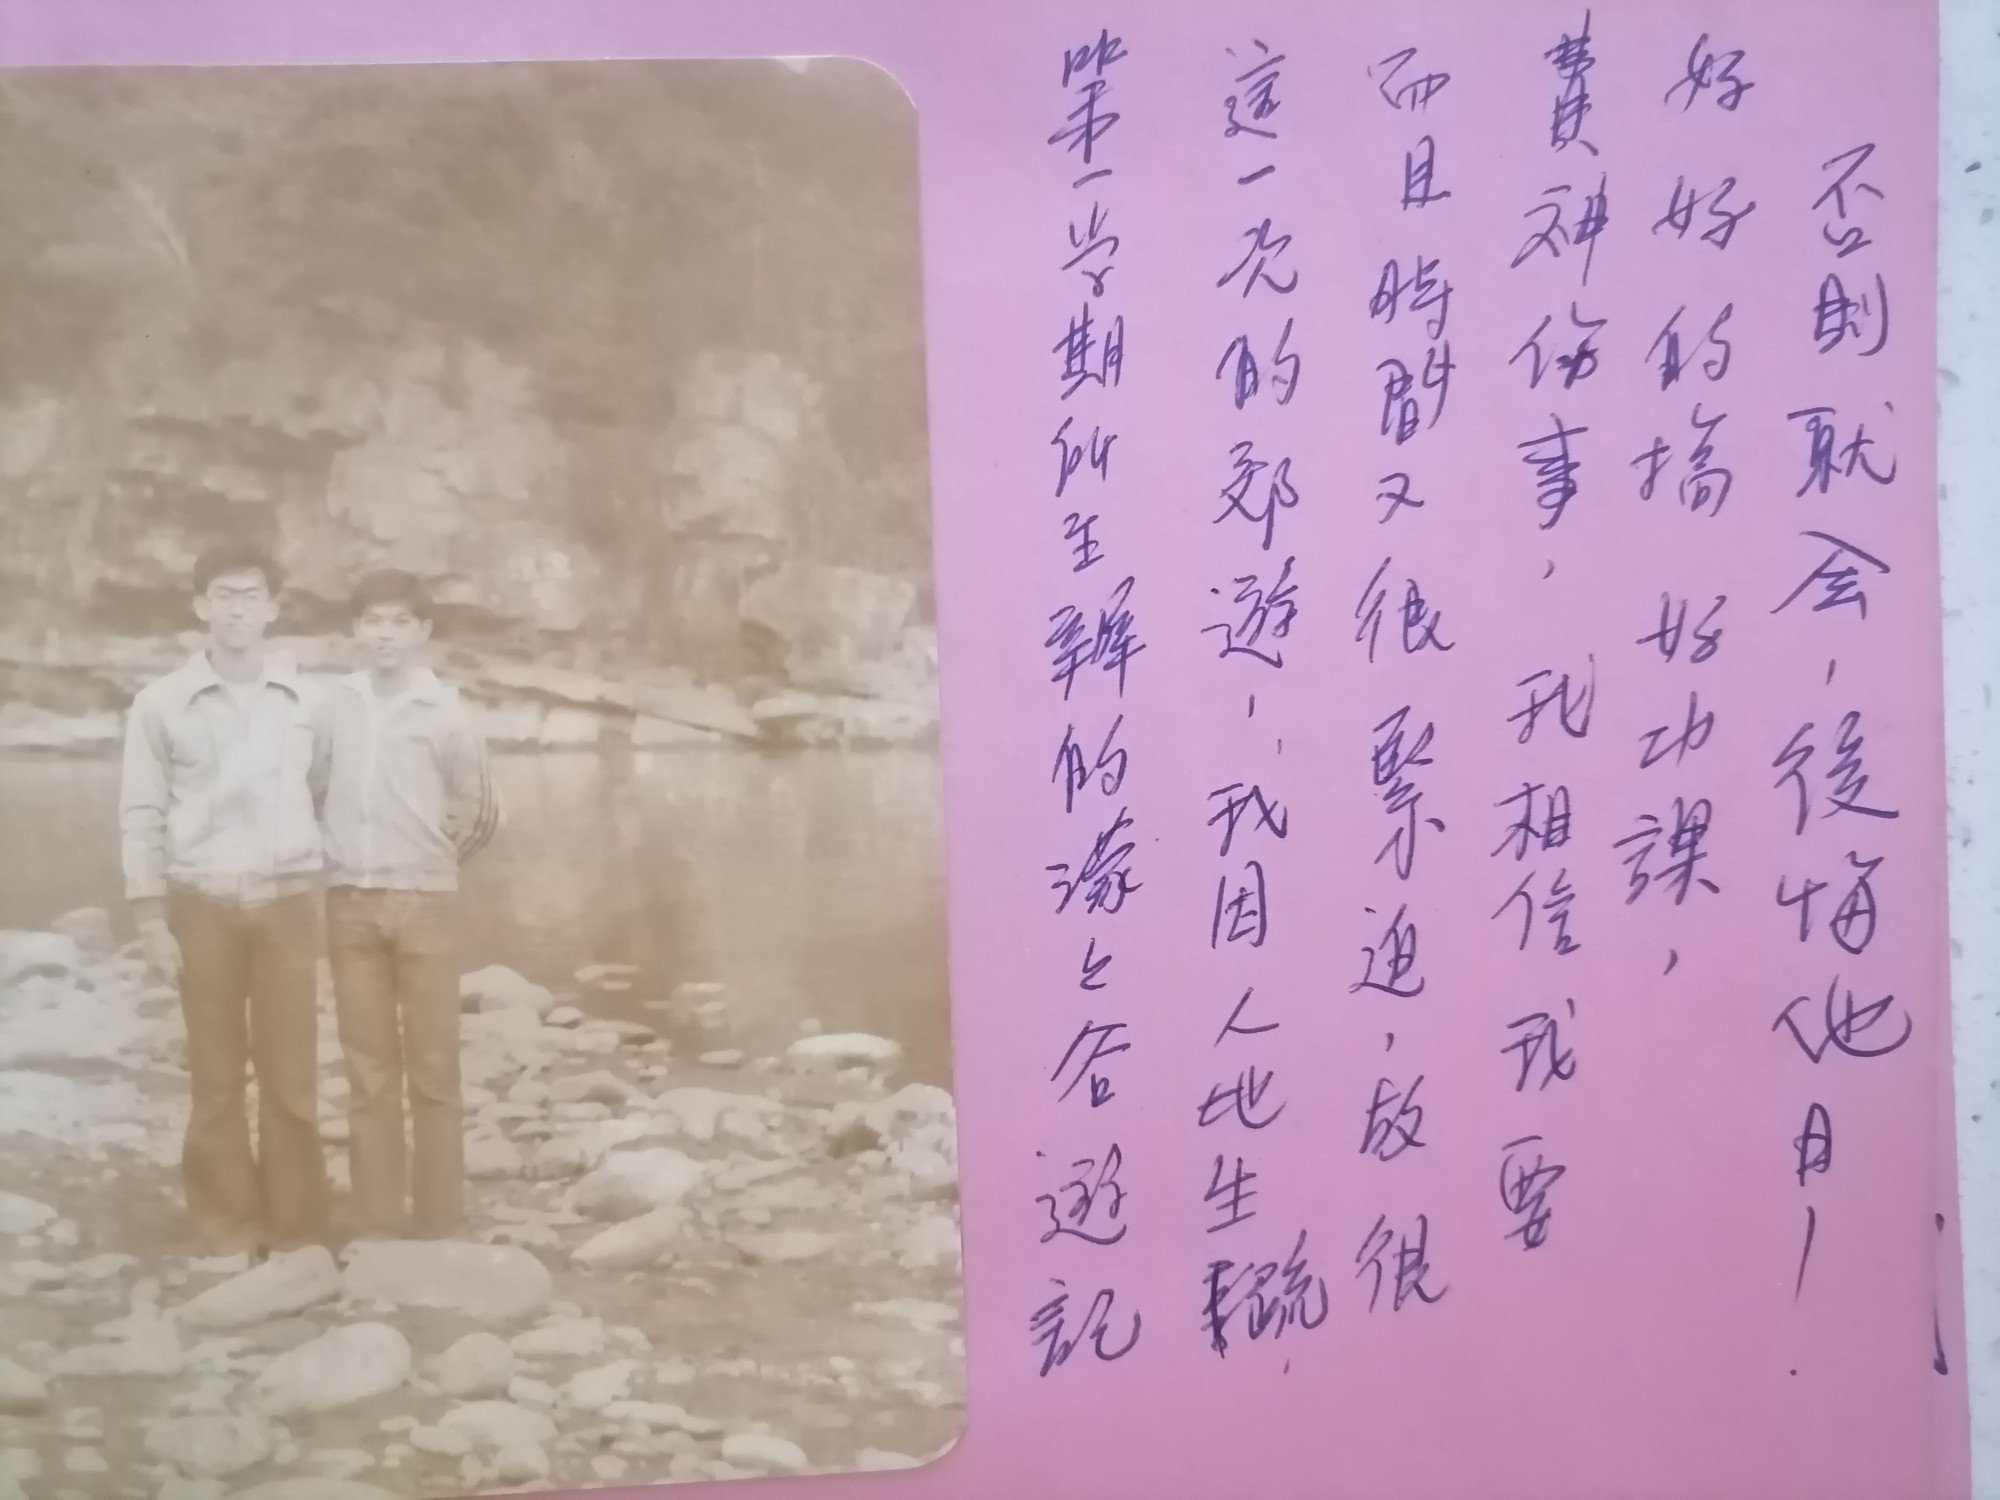 第一学期所主辦的濛々谷遊記
這一次的郊遊，我因人地生疏，
而且時間又很緊迫，故很
費神伤事，我相信我要
好好的搞好功課，
否則就会，後悔他日！